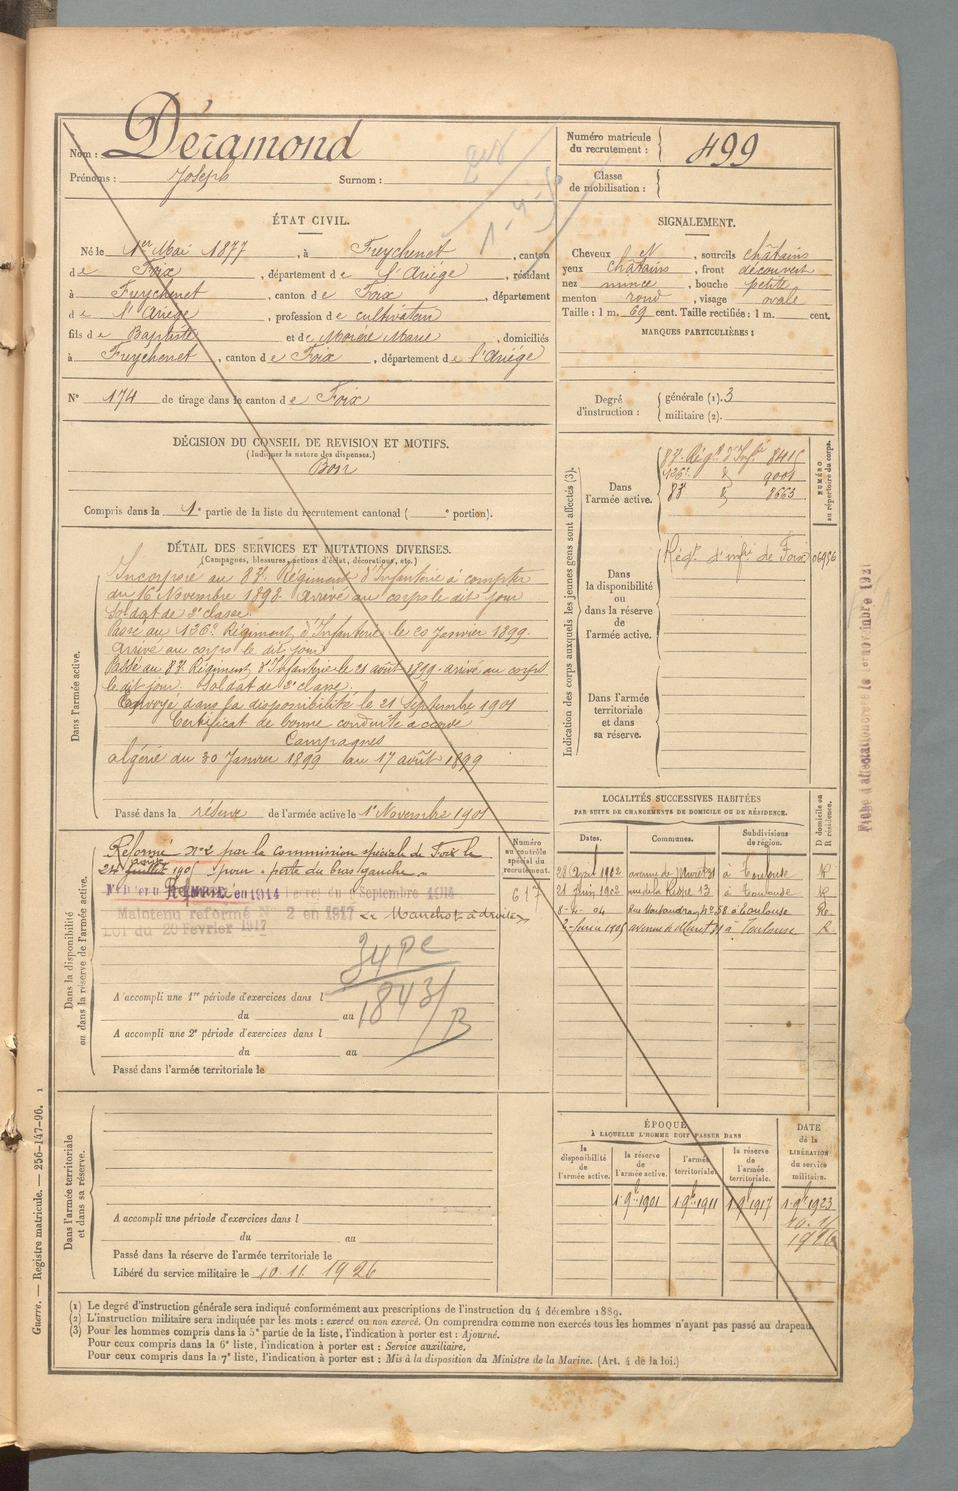 Nom : Déramond
Prénoms : Joseph Surnom :
Numéro matricule du recrutement : 499
Classe de mobilisation :
ÉTAT CIVIL.
Né le 1er Mai 1877, à Freychenet, canton
de Foix, département de l'Ariège, résidant
à Freychenet, canton de Foix, département
de l'Ariège, profession de cultivateur
fils de Baptiste et de Marie, domiciliés
à Freychenet, canton de Foix, département de l'Ariège
N° 174 de tirage dans le canton de Foix
SIGNALEMENT.
Cheveux N, sourcils châtains
yeux châtains, front découvert
nez mince, bouche petite
menton rond, visage ovale
Taille : 1 m. 69 cent. Taille rectifiée : 1 m. cent.
MARQUES PARTICULIÈRES :
Degré d'instruction : générale (1). 3
militaire (2).
DÉCISION DU CONSEIL DE REVISION ET MOTIFS.
(Indiquer la nature des dispenses.)
Bon
Compris dans la 1e partie de la liste du recrutement cantonal ( e portion).
DÉTAIL DES SERVICES ET MUTATIONS DIVERSES.
(Campagnes, blessures, actions d'éclat, décorations, etc.)
Dans l'armée active.
Incorporé au 83e Régiment d'Infanterie à compter
du 16 Novembre 1898. Arrivé au corps le dit jour
Soldat de 2e classe.
Passé au 136e Régiment d'Infanterie le 20 Janvier 1899.
Arrivé au corps le dit jour
Passé au 83e Régiment d'Infanterie le 21 août 1899. arrivé au corps
le dit jour. Soldat de 2e classe.
Envoyé dans la disponibilité le 21 Septembre 1901
Certificat de bonne conduite accordé
Campagnes
Algérie du 30 Janvier 1899 au 17 août 1899
Passé dans la réserve de l'armée active le 1er Novembre 1901
Indication des corps auxquels les jeunes gens sont affectés (3).
NUMÉRO au répertoire du corps.
Dans l'armée active.
83e Régt d'Infie 8415
136e d° 9001
83e d° 8663
Dans la disponibilité ou dans la réserve de l'armée active.
Régt d'infie de Foix 06956
Dans l'armée territoriale et dans sa réserve.
Fiche d'attestation créée le novembre 1921
Dans la disponibilité ou dans la réserve de l'armée active.
Réformé N°2 par la commission spéciale de Foix le
24 juillet 1905 pour « perte du bras gauche ».
Maintenu Réformé en 1914 Décret du 9 Septembre 1914
Maintenu réformé N° 2 en 1917 « Manchot à droite »
Loi du 20 Février 1917
34 PC
1843/B
A accompli une 1re période d'exercices dans l
du au
A accompli une 2e période d'exercices dans l
du au
Passé dans l'armée territoriale le
Numéro au contrôle spécial du recrutement.
617
LOCALITÉS SUCCESSIVES HABITÉES
PAR SUITE DE CHANGEMENTS DE DOMICILE OU DE RÉSIDENCE.
Dates. Communes. Subdivisions de région. D domicile ou R résidence.
28 1902 avenue de Muret 31 à Toulouse R
21 Juin 1902 rue de la 13 à Toulouse R
8-4-04 Rue n° 58 à Toulouse Re
1905 avenue de Muret à Toulouse R
ÉPOQUE
À LAQUELLE L'HOMME DOIT PASSER DANS
la disponibilité de l'armée active. la réserve de l'armée active. l'armée territoriale. la réserve de l'armée territoriale. DATE de la LIBÉRATION du service militaire.
1.9e 1901 1.9e 1911 1.9e 1917 1.9e 1923
10.11
1926
Dans l'armée territoriale et dans sa réserve.
A accompli une période d'exercices dans l
du au
Passé dans la réserve de l'armée territoriale le
Libéré du service militaire le 10.11.1926
(1) Le degré d'instruction générale sera indiqué conformément aux prescriptions de l'instruction du 4 décembre 1889.
(2) L'instruction militaire sera indiquée par les mots : exercé ou non exercé. On comprendra comme non exercés tous les hommes n'ayant pas passé au drapeau.
(3) Pour les hommes compris dans la 5e partie de la liste, l'indication à porter est : Ajourné.
Pour ceux compris dans la 6e liste, l'indication à porter est : Service auxiliaire.
Pour ceux compris dans la 7e liste, l'indication à porter est : Mis à la disposition du Ministre de la Marine. (Art. 4 de la loi.)
Guerre. — Registre matricule. — 256-147-96. 1